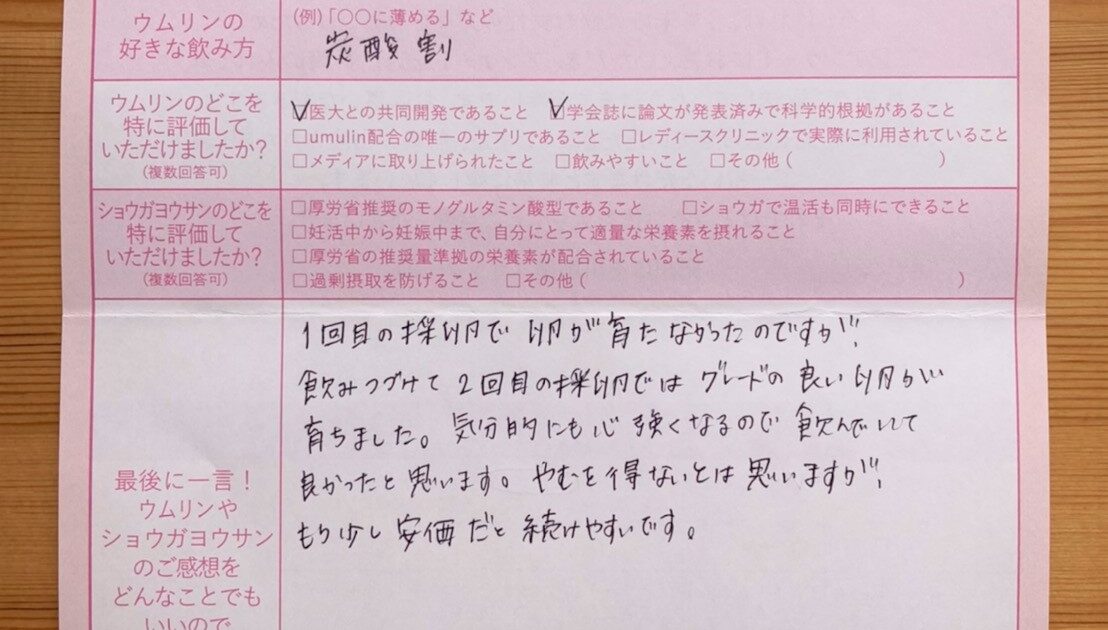 ウムリンの
好きな飲み方
(例)「〇〇に薄める」など
炭酸割
ウムリンのどこを
特に評価して
いただけましたか?
(複数回答可)
☑医大との共同開発であること ☑学会誌に論文が発表済みで科学的根拠があること
□umulin配合の唯一のサプリであること □レディースクリニックで実際に利用されていること
□メディアに取り上げられたこと □飲みやすいこと □その他( )
ショウガヨウサンのどこを
特に評価して
いただけましたか?
(複数回答可)
□厚労省推奨のモノグルタミン酸型であること □ショウガで温活も同時にできること
□妊活中から妊娠中まで、自分にとって適量な栄養素を摂れること
□厚労省の推奨量準拠の栄養素が配合されていること
□過剰摂取を防げること □その他( )
最後に一言!
ウムリンや
ショウガヨウサン
のご感想を
どんなことでも
いいので
1回目の採卵で卵が育たなかったのですが
飲みつづけて2回目の採卵ではグレードの良い卵が
育ちました。気分的にも心強くなるので飲んでいて
良かったと思います。やむを得ないとは思いますが
もう少し安価だと続けやすいです。